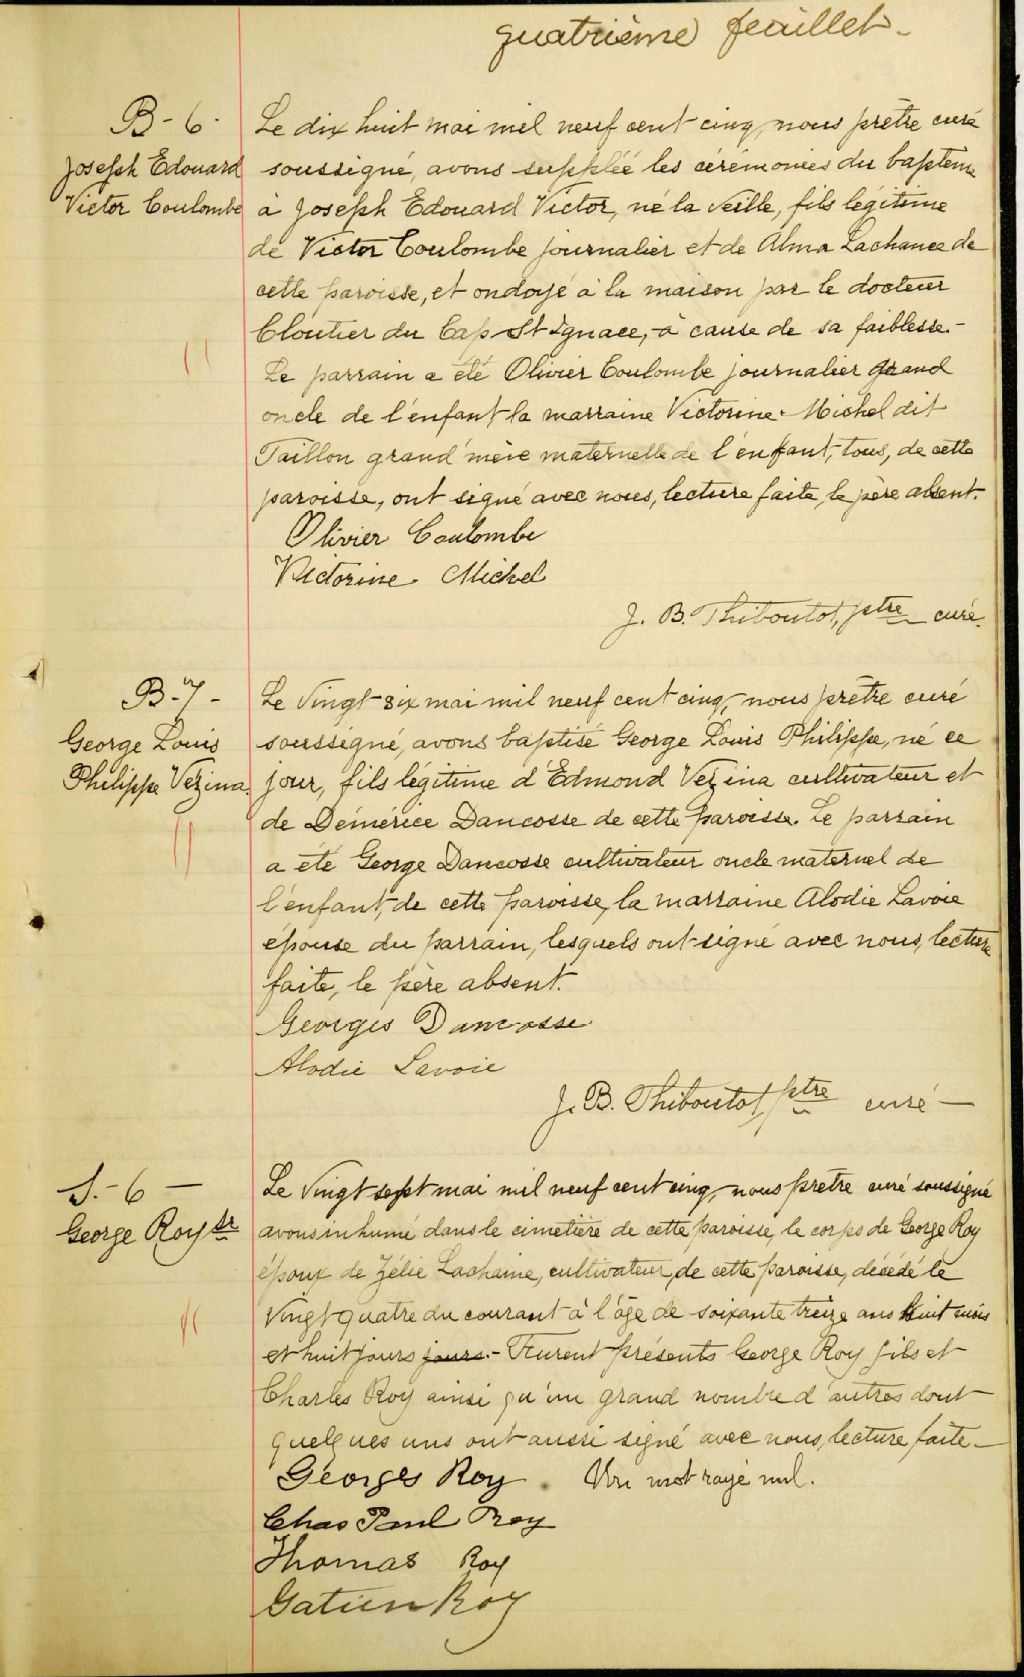 quatrième feuillet -
B - 6 -
Joseph Edouard
Victor Coulombe
Le dix huit mai mil neuf cent cinq, nous prêtre curé
soussigné, avons supplée les cérémonies du baptême
à Joseph Edouard Victor, né la veille, fils légitime
de Victor Coulombe journalier et de Alma Lachance de
cette paroisse, et ondoyé à la maison par le docteur
Cloutier du Cap St Ignace, à cause de sa faiblesse. -
Le parrain a été Olivier Coulombe journalier grand
oncle de l'enfant la marraine Victorine Michel dit
Taillon grand'mère maternelle de l'enfant, tous, de cette
paroisse, ont signé avec nous, lecture faite, le père absent.
Olivier Coulombe
Victorine Michel
J. B. Thiboutot, ptre curé.
B - 7 -
George Louis
Philippe Vezina
Le vingt-six mai mil neuf cent cinq, nous prêtre curé
soussigné, avons baptisé George Louis Philippe, né ce
jour, fils légitime d'Edmond Vezina cultivateur et
de Démérice Dancosse de cette paroisse. Le parrain
a été George Dancosse cultivateur oncle maternel de
l'enfant, de cette paroisse, la marraine Alodie Lavoie
épouse du parrain, lesquels ont signé avec nous, lecture
faite, le père absent.
Georges Dancosse
Alodie Lavoie
J. B. Thiboutot, ptre curé -
S. - 6 -
George Roy sr
Le vingt sept mai mil neuf cent cinq, nous prêtre curé soussigné
avons inhumé dans le cimetière de cette paroisse, le corps de George Roy
époux de Zélie Lachaine, cultivateur, de cette paroisse, décédé le
vingt quatre du courant à l'âge de soixante treize ans huit mois
et huit jours jours. - Furent présents George Roy fils et
Charles Roy ainsi qu'un grand nombre d'autres dont
quelques uns ont aussi signé avec nous, lecture faite -
Georges Roy. Un mot rayé nul.
Chas Paul Roy
Thomas Roy
Gatien Roy